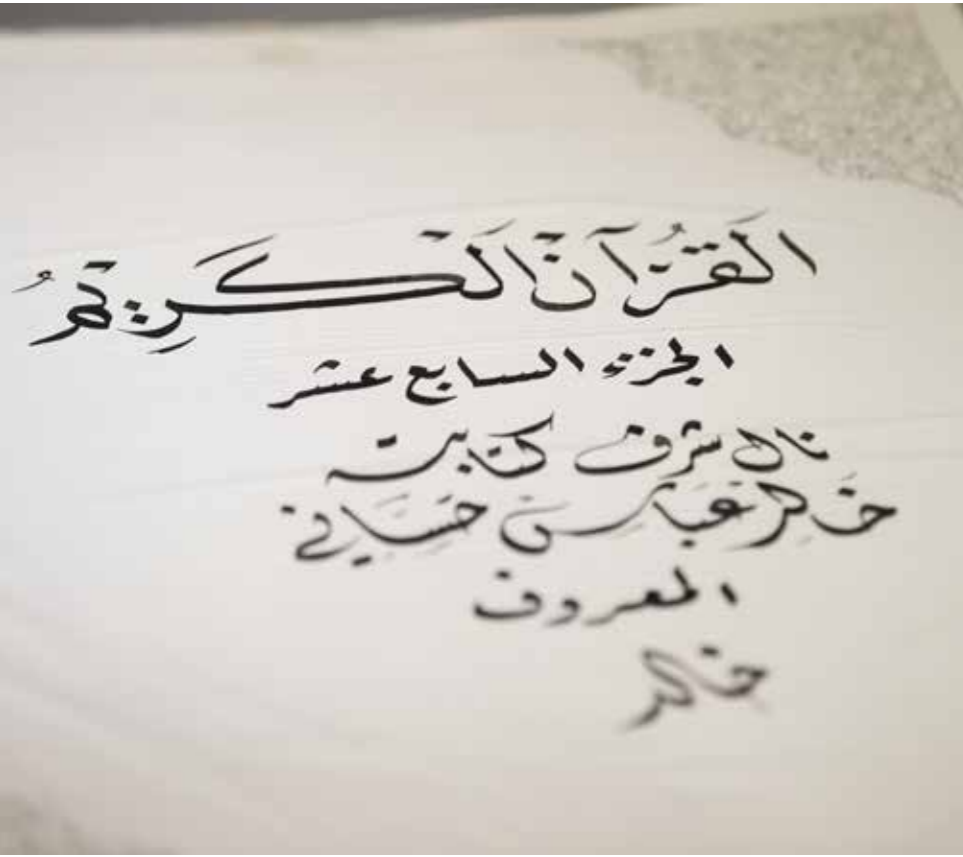 اَلْقُرْآنُ الْكَرِيمُ
الجزء السابع عشر
نال شرف كتابته
خالد عباس حساني
المعروف
خالد